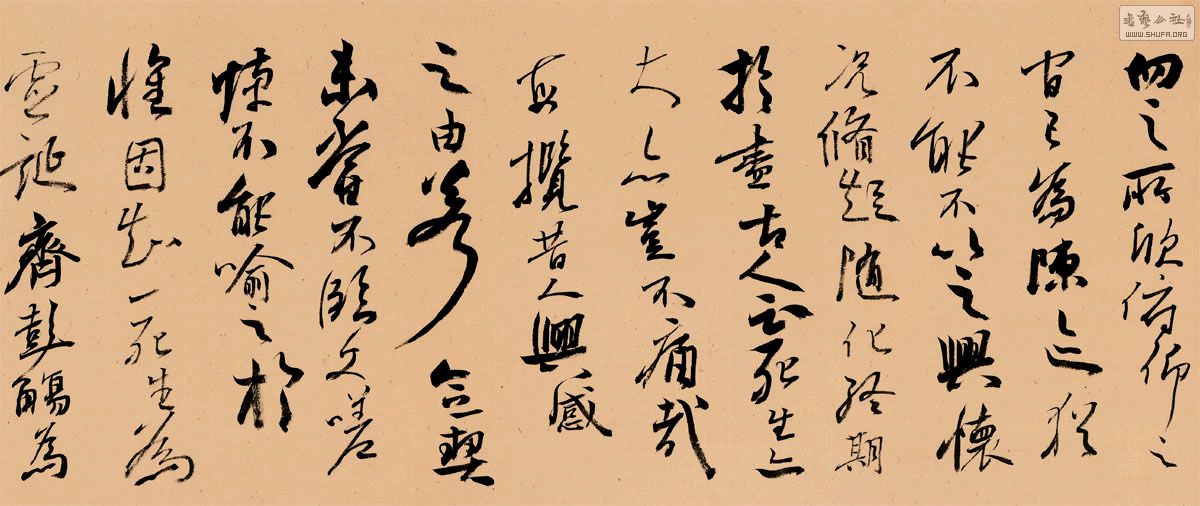 向之所欣俯仰之
間已為陳迹猶
不能不以之興懷
况脩短随化終期
於盡古人云死生亦
大矣豈不痛哉
每攬昔人興感
之由若合一契
未嘗不臨文嗟
悼不能喻之於
懷固知一死生為
虛誕齊彭殤為
書藝公社
WWW.SHUFA.ORG